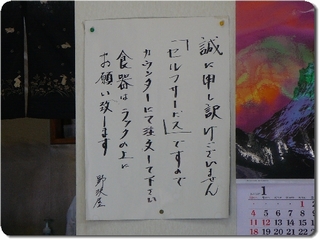 誠に申し訳けございません
「セルフサービス」ですので
カウンターにて注文して下さい
食器はラックの上に
お願い致します
1
1
4 5 6 7 8
11 12 13 14 15
18 19 20 21 22
25 26 27 28 29